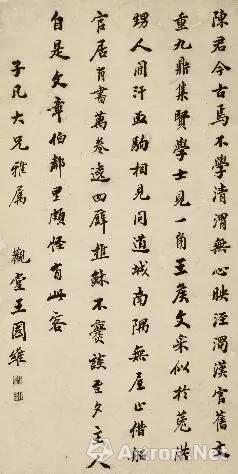 陳君今古焉不學清渭無心映涇濁漢官舊文
重九鼎集賢學士見一角王侯文采似於菟洪
甥人間汗血駒相見問道城南隅無屋止借船
官居有書萬卷遶四壁樵蘇不爨談至夕主人
自是文章伯鄰里頗怪有此客
子凡大兄雅屬 觀堂王國維
Artron.Net